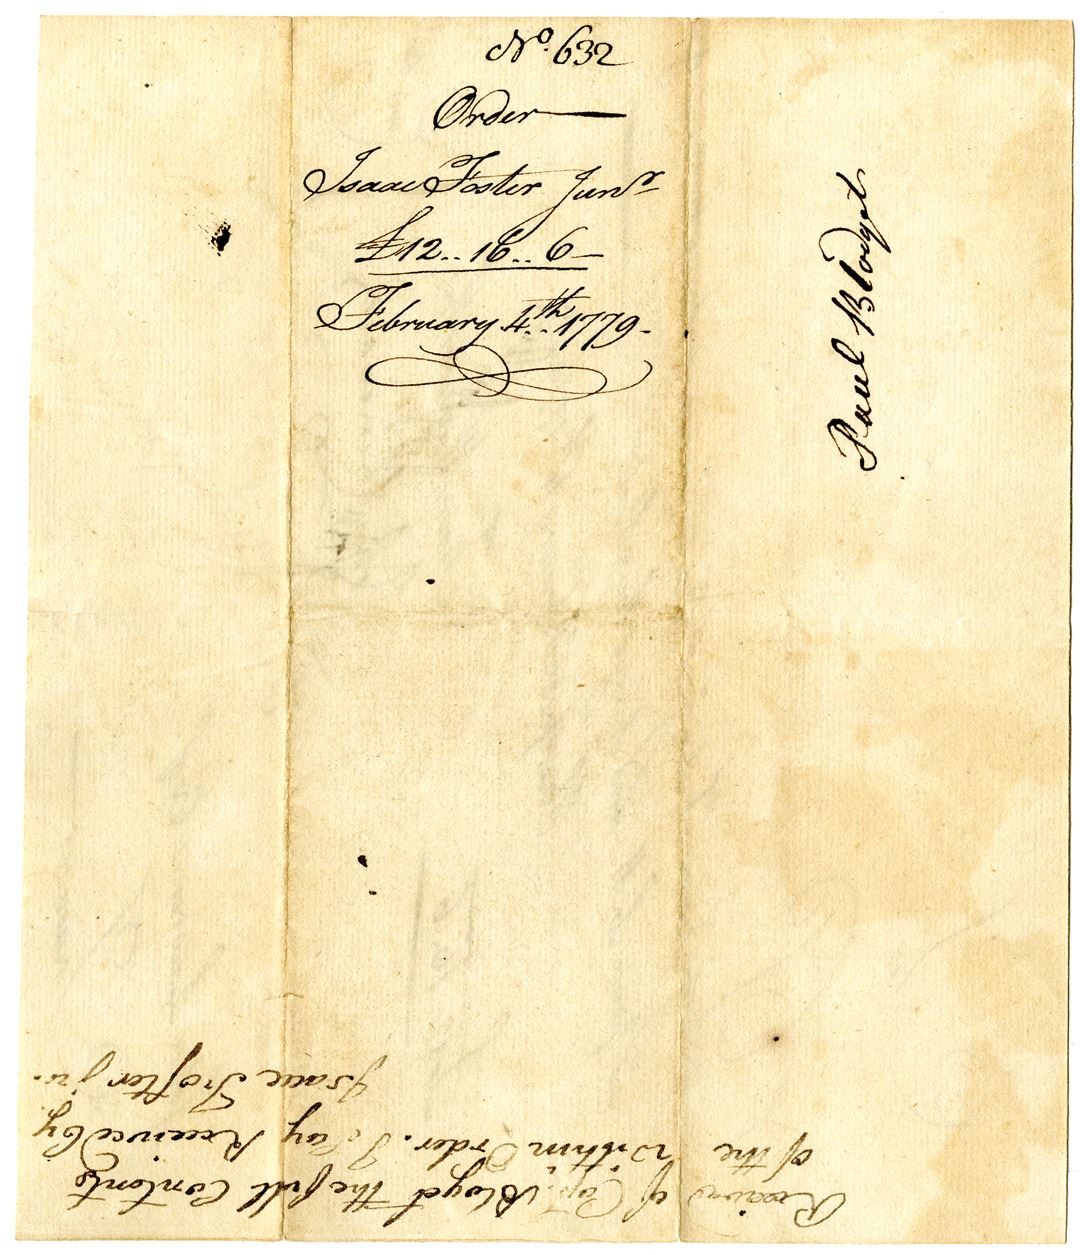 No. 632
Order
Isaac Foster Junr
£12.. 16.. 6
February 4th.. 1779.
Paul Blodget
Received of Capt. Bloget the full Contents
of the within Order. I Say Received by
Isaac Froster jr.